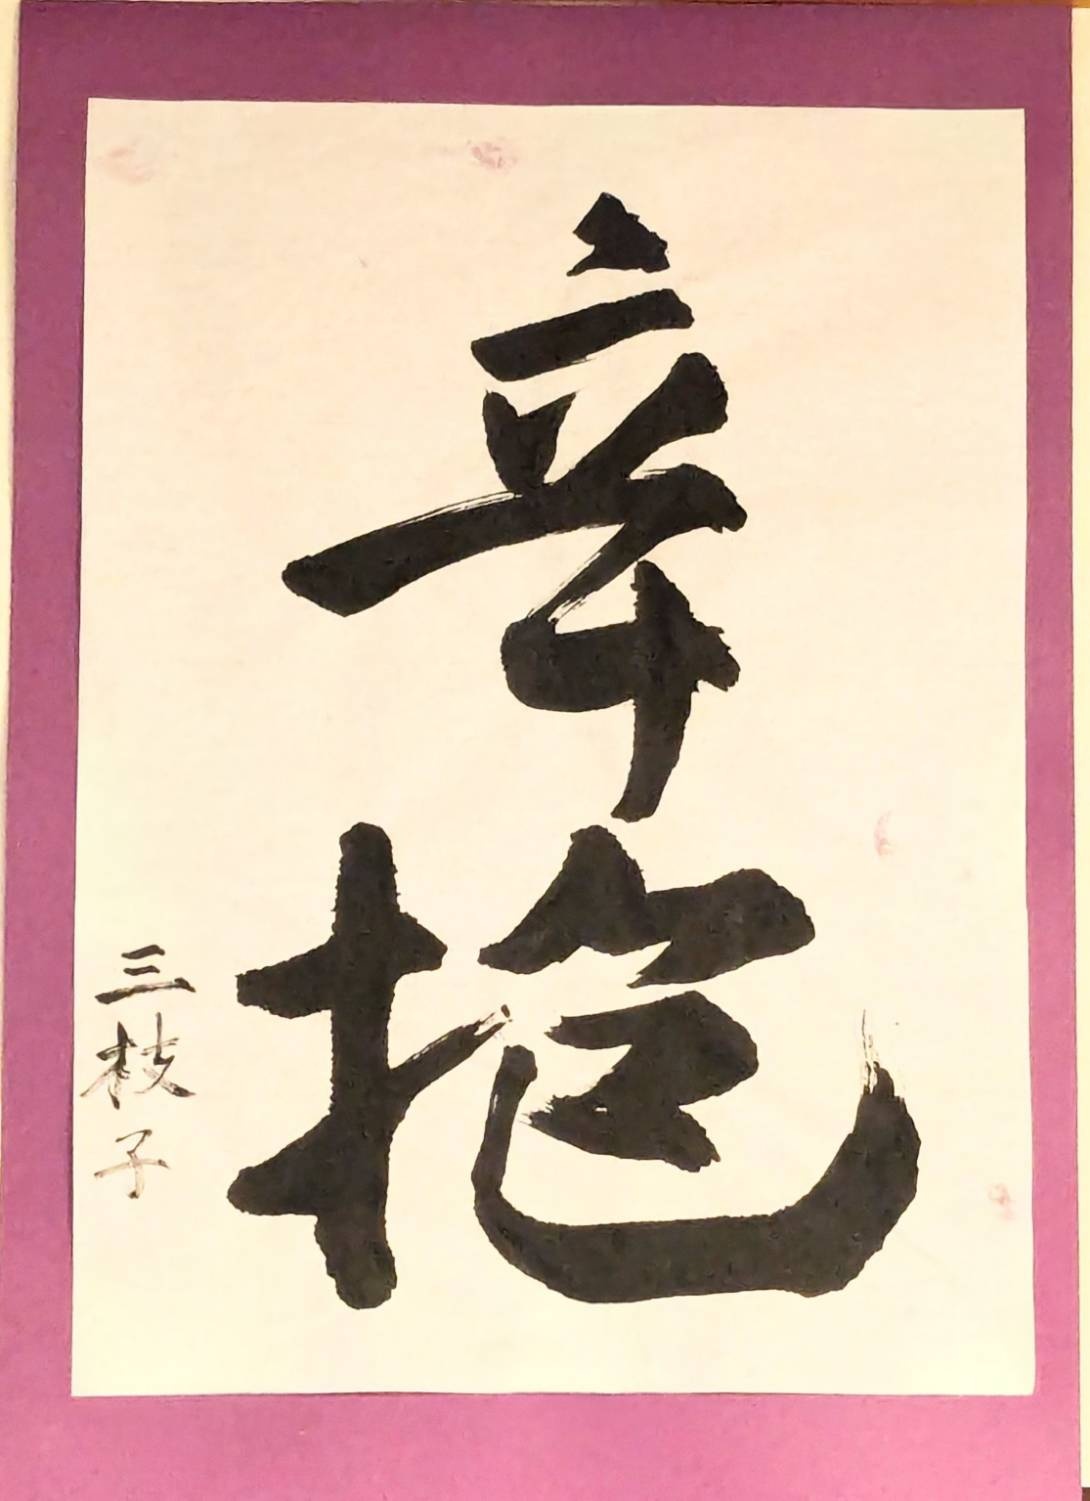 辛抱
三枝子